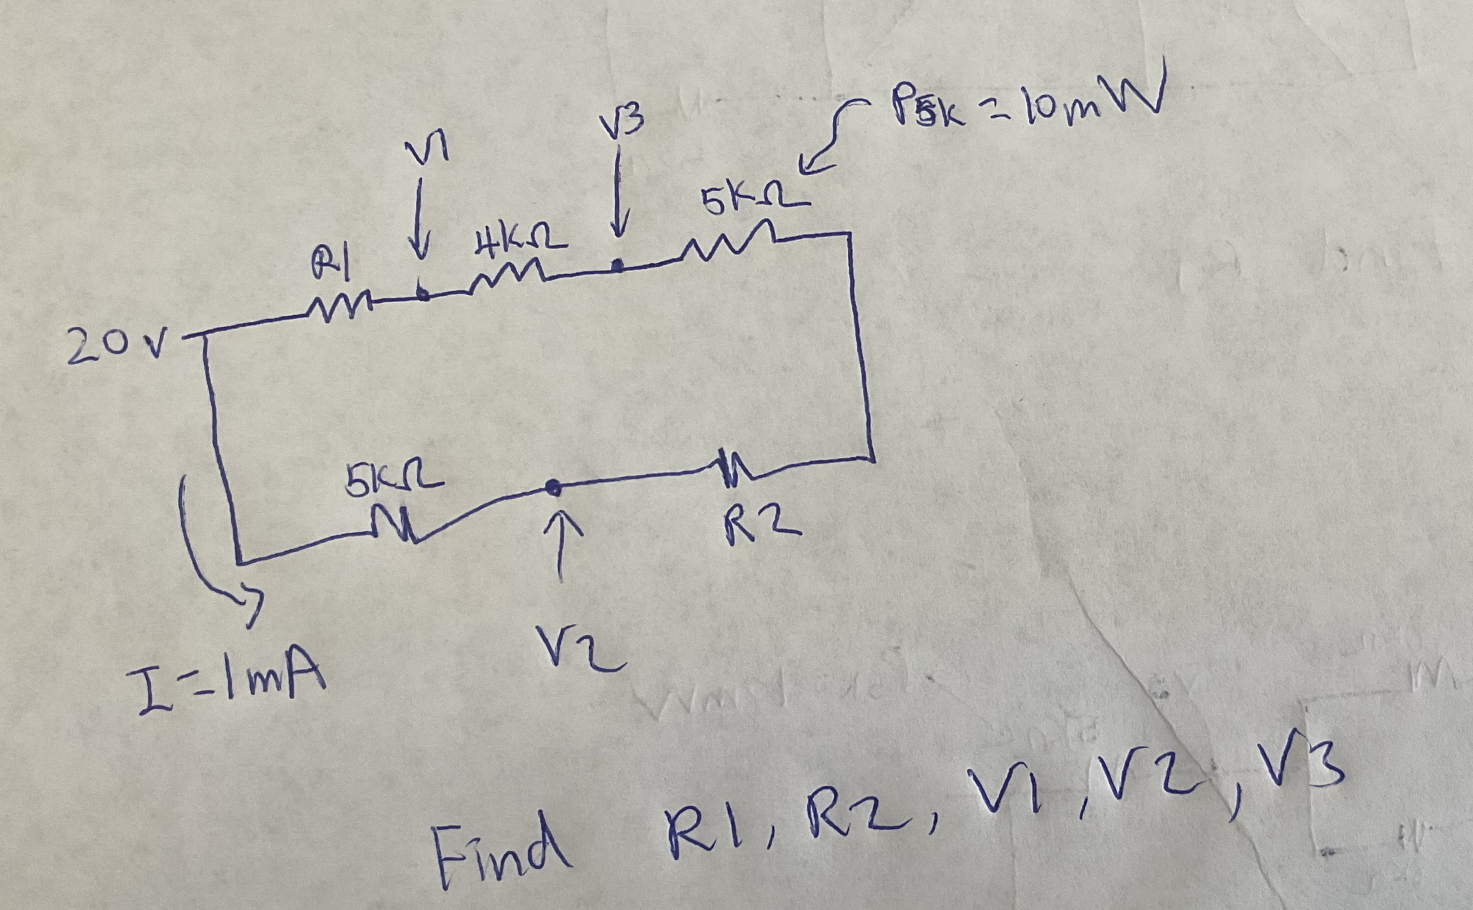 V1
V3
P5K = 10mW
R1
4KΩ
5KΩ
20V
5KΩ
R2
V2
I=1mA
Find R1, R2, V1, V2, V3